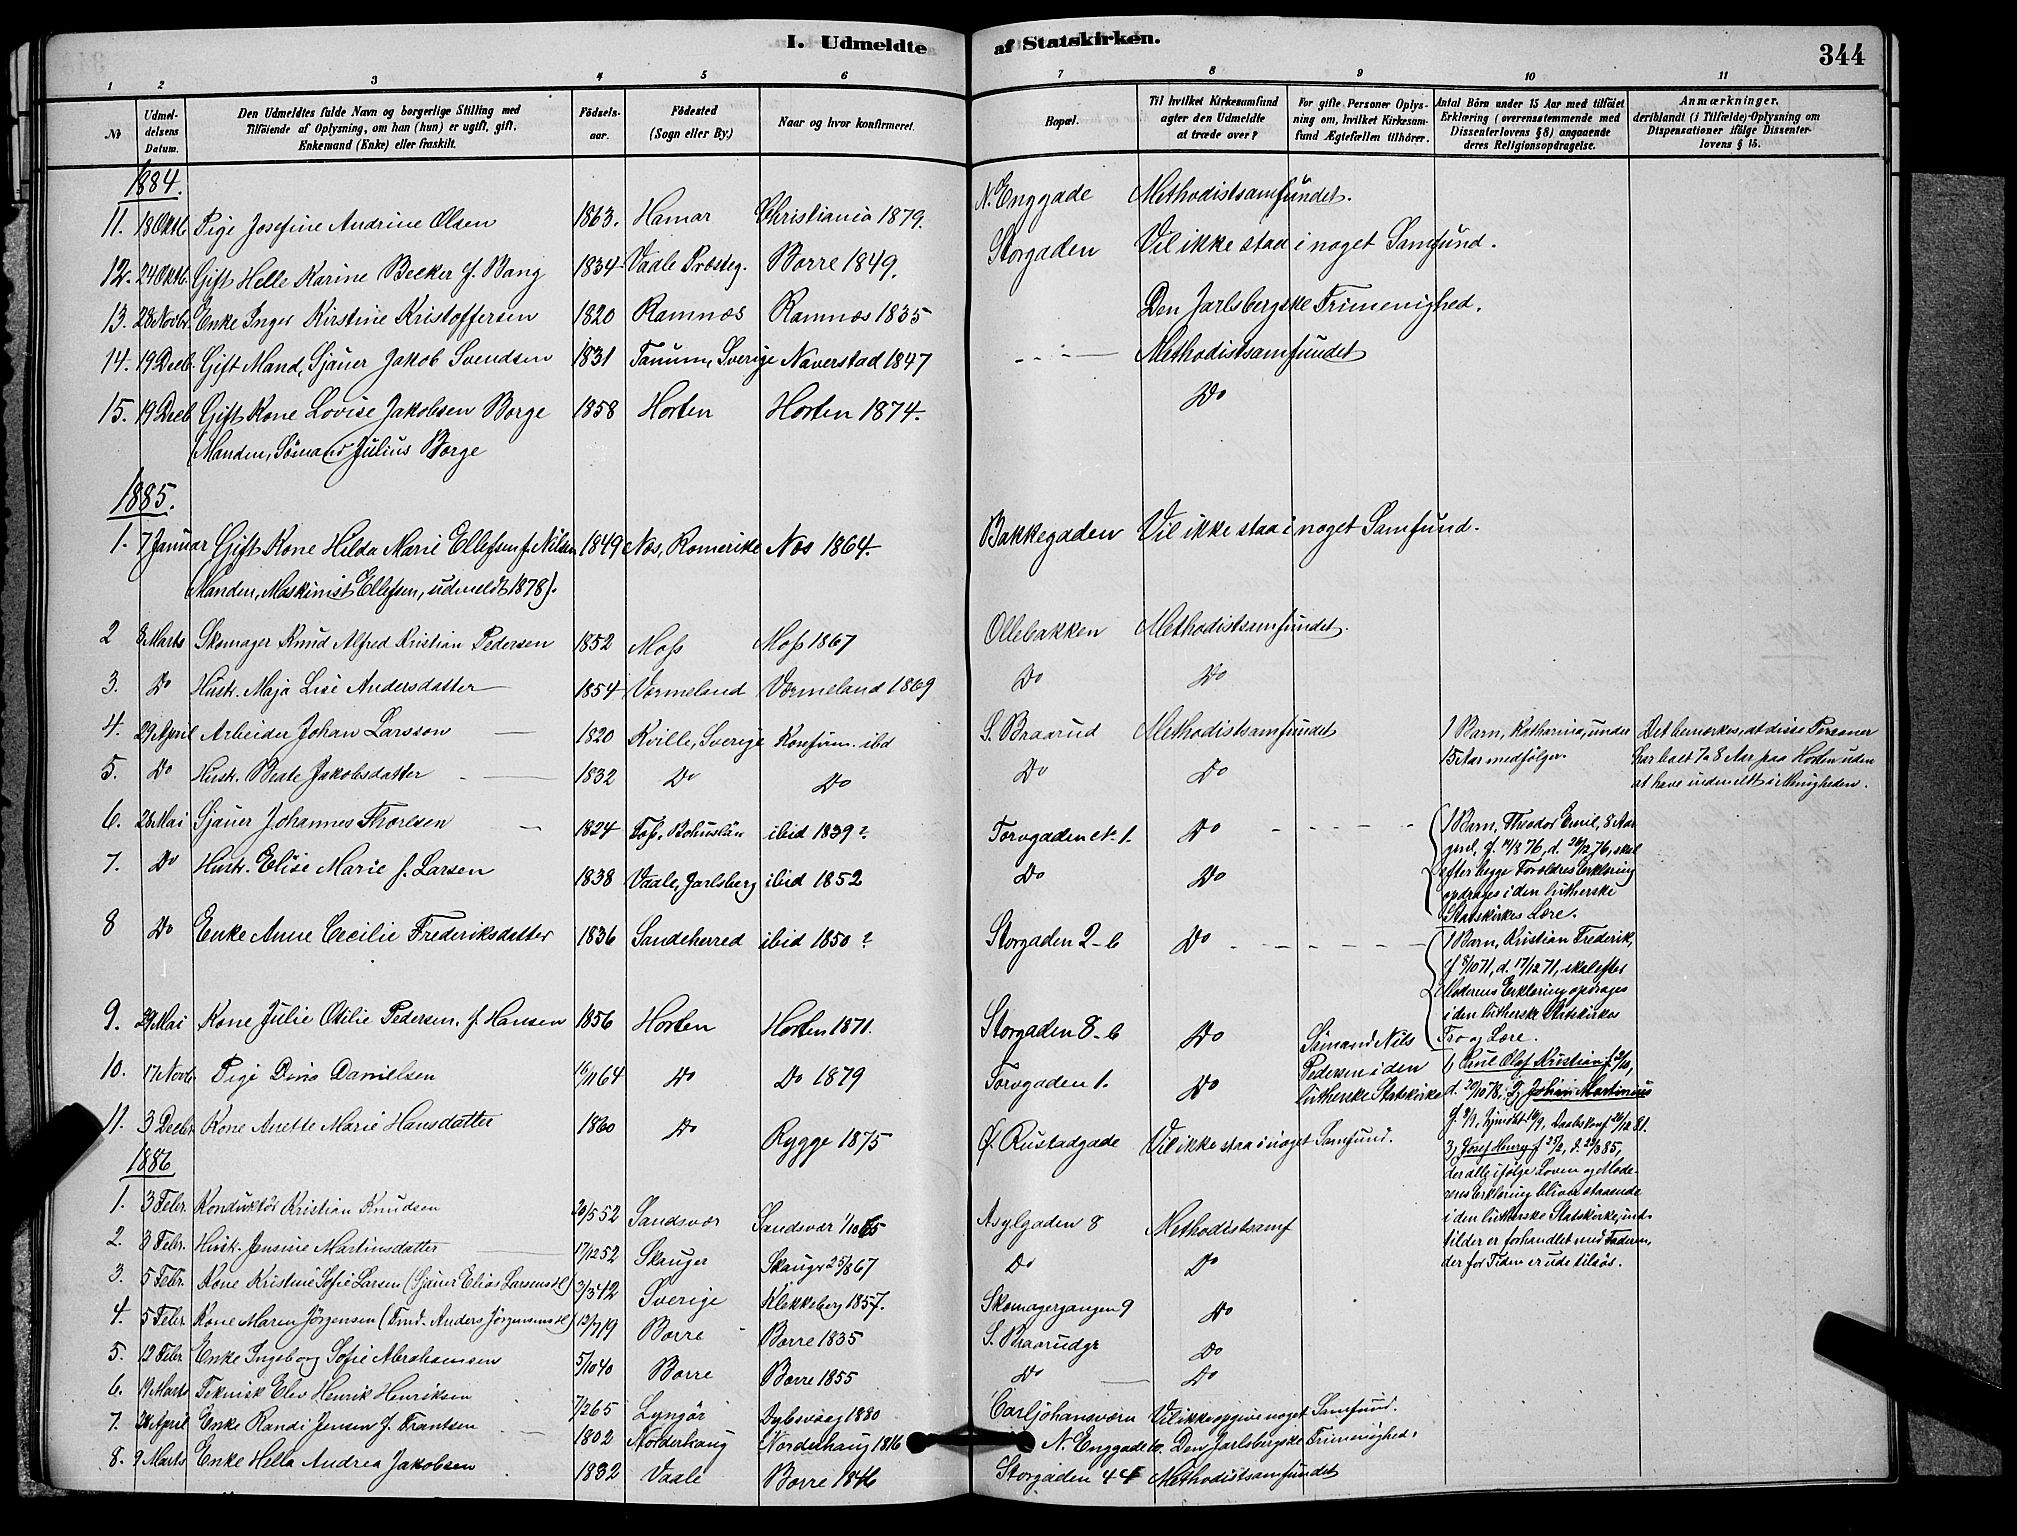 I. Udmeldte af Statskirken. 344
1 2 3 4 5 6 7 8 9 10 11
No
Udmel-
delsens
Datum.
Den Udmeldtes fulde Navn og borgerlige Stilling med
Tilføiende af Oplysning, om han (hun) er ugift, gift,
Enkemand (Enke) eller fraskilt.
Födsels-
aar.
Födested
(Sogn eller By.)
Naar og hvor konfirmeret.
Bopæl.
Til hvilket Kirkesamfund
agter den Udmeldte
at træde over?
For gifte Personer Oplys-
ning om, hvilket Kirkesam-
fund Ægtefællen tilhörer.
Antal Börn under 15 Aar med tilføiet
Erklæring (overensstemmende med
Dissenterlovens § 8) angaaende
deres Religionsopdragelse.
Anmærkninger,
deriblandt (i Tilfælde) Oplysning om
Dispensationer ifölge Dissenter-
lovens § 15.
1884.
11. 18 Oktb. Pige Josefine Andrine Olsen 1863. Hamar Christiania 1879. N. Enggade Methodistsamfundet.
12. 24 Oktb. Gift Helle Karine Becker f. Bang 1834 Vaale Præsteg. Borre 1849. Storgaden Vil ikke staa i noget Samfund.
13. 28 Novbr. Enke Inger Kirstine Kristoffersen 1820 Ramnæs Ramnæs 1835 Den Jarlsbergske Frimenighed.
14. 19 Decb. Gift Mand, Sjauer Jakob Svendsen 1831 Tanum, Sverige Naverstad 1847 Methodistsamfundet
15. 19 Decb Gift Kone Lovise Jakobsen Borge 1858 Horten Horten 1874. Do
(Manden, Sømand Julius Borge
1885.
1. 7 Januar Gift Kone Hilda Marie Ellefsen f. Nilsen 1849 Næs, Romerike Næs 1864. Bakkegaden Vil ikke staa i noget Samfund.
Manden, Maskinist Ellefsen, udmeldt 1878).
2 8 Marts Skomager Knud Alfred Kristian Pedersen 1852 Moss Moss 1867 Ollebakken Methodistsamfundet.
3. Do Hustr. Maja Lise Andersdatter 1854 Vermeland Vermeland 1869 Do Do
4. 29 April Arbeider Johan Larsson 1820 Kville, Sverige Konfirm. ibd S. Braarud Methodistsamfundet 1 Barn, Katharina, under Det bemærkes, at disse Personer
15 Aar medfølger. har boet 7 a 8 Aar paa Horten uden
5. Do Hustr. Beate Jakobsdatter 1832 Do Do Do Do at have indmeldt i Menigheden.
6. 28 Mai Sjauer Johannes Thorlsen 1824 Bohuslän ibid 1839? Torvgaden 1. Do 1 Barn, Theodor Emil, 8 Aar
gml, f. 14/8 76, d. 26/12 76, skal
7. Do Hustr. Elise Marie f. Larsen 1838 Vaale, Jarlsberg ibid 1852 Do Do efter begge Forældres Erklæring
opdrages i den lutherske
Statskirkes Lære.
8 Do Enke Anne Cecilie Frederiksdatter 1836 Sandeherred ibid 1850? Storgaden 2-b Do 1 Barn, Kristian Frederik,
f 8/10 71, d. 17/12 71, skal efter
Moderens Erklæring opdrages
i den lutherske Statskirkes
Tro og Lære.
9. 29 Mai Kone Julie Otilie Pedersen. f. Hansen 1856 Horten Horten 1871. Storgaden 8-b Do Sømand Nils
Pedersen i den
lutherske Statskirke
1, Emil Olaf Kristian f 2/10,
d. 20/10 78, 2, Johan Martinius
f. 9/9, hjmdbt 16/9, Daabskonf 26/12 81.
3, Josef Henry f 25/2, d. 29/3 85,
der alle ifølge Loven og Mode-
rens Erklæring bliver staaende
i den lutherske Statskirke, ind-
tilder er forhandlet med Faderen,
der for Tiden er ude tilsøs.
10. 17 Novb. Pige Dina Danielsen 16/11 64 Do Do 1879 Torvgaden 1. Do
11. 3 Decbr Kone Anette Marie Hansdatter 1860 Do Rygge 1875 Ø. Rustadgade Vil ikke staa i noget Samfund.
1886
1. 3 Febr. Konduktör Kristian Knudsen 20/5 52 Sandsvær Sandsvær 1/10 65 Asylgaden 8 Methodistsamf
2. 3 Febr. Hustr. Jensine Martinsdatter 17/12 52 Skauger Skauger 25/8 67 Do Do
3. 5 Febr. Kone Kristine Sofie Larsen (Sjauer Elias Larsens) 3/3 42 Sverige Klekkeberg 1857. Skomagergangen 9 Do
4. 5 Febr. Kone Maren Jørgensen (Tmd. Anders Jørgensens) 12/7 19 Borre Borre 1835 S. Braarudgt Do
5. 12 Febr. Enke Ingeborg Sofie Abrahamsen 5/10 40 Borre Borre 1855 Do Do
6. 19 Marts Teknisk Elev Henrik Henriksen 7/2 65 Lyngör Dybvaag 1880 Carljohansværn Vil ikke opgive noget Samfund.
7. 28 April Enke Randi Jensen f. Frantsen 1802 Norderhaug Norderhaug 1816 N. Enggade 10. Den Jarlsbergske Frimenighed.
8. 9 Marts Enke Hella Andrea Jakobsen 1832 Vaale Borre 1846 Storgaden 44 Methodistsamfundet